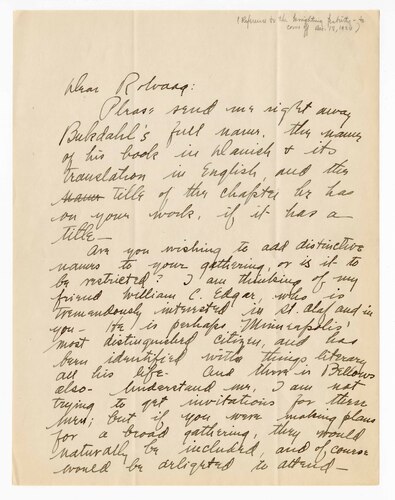 (Reference to the
cover of Dec. 15, 1929)
Dear Rolvaag:
Please send me right away
Bukdahl's full name, the name
of his book in Danish & its
translation in English, and the
name title of the chapter he has
on your work, if it has a
title—
Are you wishing to add distinctive
names to your gathering, or is it to
be restricted? I am thinking of my
friend William C. Edgar, who is
tremendously interested in St. Olaf and in
you— He is perhaps Minneapolis'
most distinguished citizen, and has
been identified with things literary
all his life. And there is Bellows
also. Understand me, I am not
trying to get invitations for these
men; but if you were making plans
for a broad gathering, they would
naturally be included, and of course
would be delighted to attend—